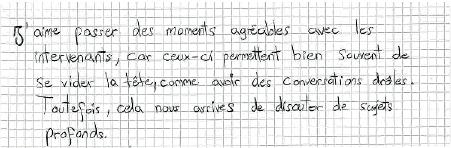 J'aime passer des moments agréables avec les
intervenants, car ceux-ci permettent bien souvent de
se vider la tête, comme avoir des conversations drôles.
Toutefois, cela nous arrives de discuter de sujets
profonds.